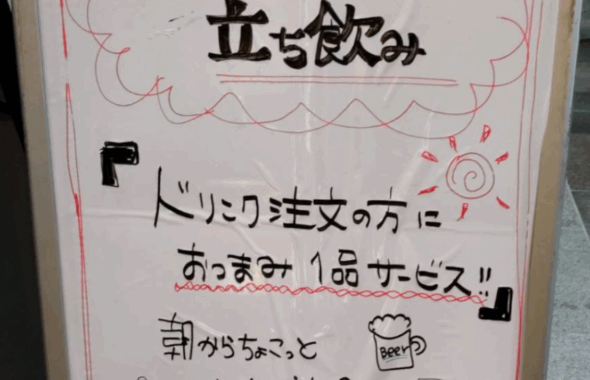 立ち飲み
『ドリンク注文の方に
おつまみ1品サービス!!』
朝からちょこっと
Beer